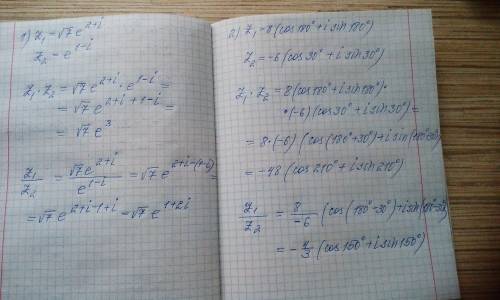 1) z₁ = √7 e^(2+i)
z₂ = e^(1-i)
z₁ · z₂ = √7 e^(2+i) · e^(1-i) =
= √7 e^(2+i+1-i) =
= √7 e^3
z₁/z₂ = √7 e^(2+i) / e^(1-i) = √7 e^(2+i-(1-i)) =
= √7 e^(2+i-1+i) = √7 e^(1+2i)
2) z₁ = 8 (cos 180° + i sin 180°)
z₂ = -6 (cos 30° + i sin 30°)
z₁ · z₂ = 8 (cos 180° + i sin 180°) ·
· (-6) (cos 30° + i sin 30°) =
= 8 · (-6) (cos (180° + 30°) + i sin (180° + 30°)
= -48 (cos 210° + i sin 210°)
z₁/z₂ = 8/-6 (cos (180° - 30°) + i sin (180° - 30°)
= - 4/3 (cos 150° + i sin 150°)